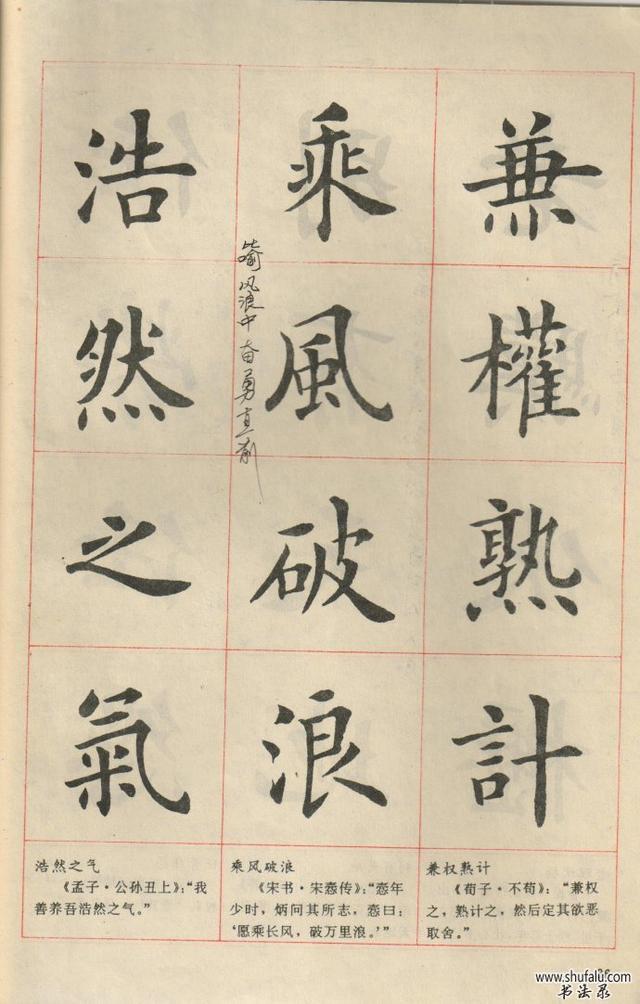 兼權熟計
乘風破浪
比喻风浪中奋勇直前
浩然之氣
兼权熟计
《荀子·不苟》:“兼权
之,熟计之,然后定其欲恶
取舍。”
乘风破浪
《宋书·宋悫传》:“悫年
少时,炳问其所志,悫曰:
‘愿乘长风,破万里浪。’”
浩然之气
《孟子·公孙丑上》:“我
善养吾浩然之气。”
www.shufalu.com
书法录